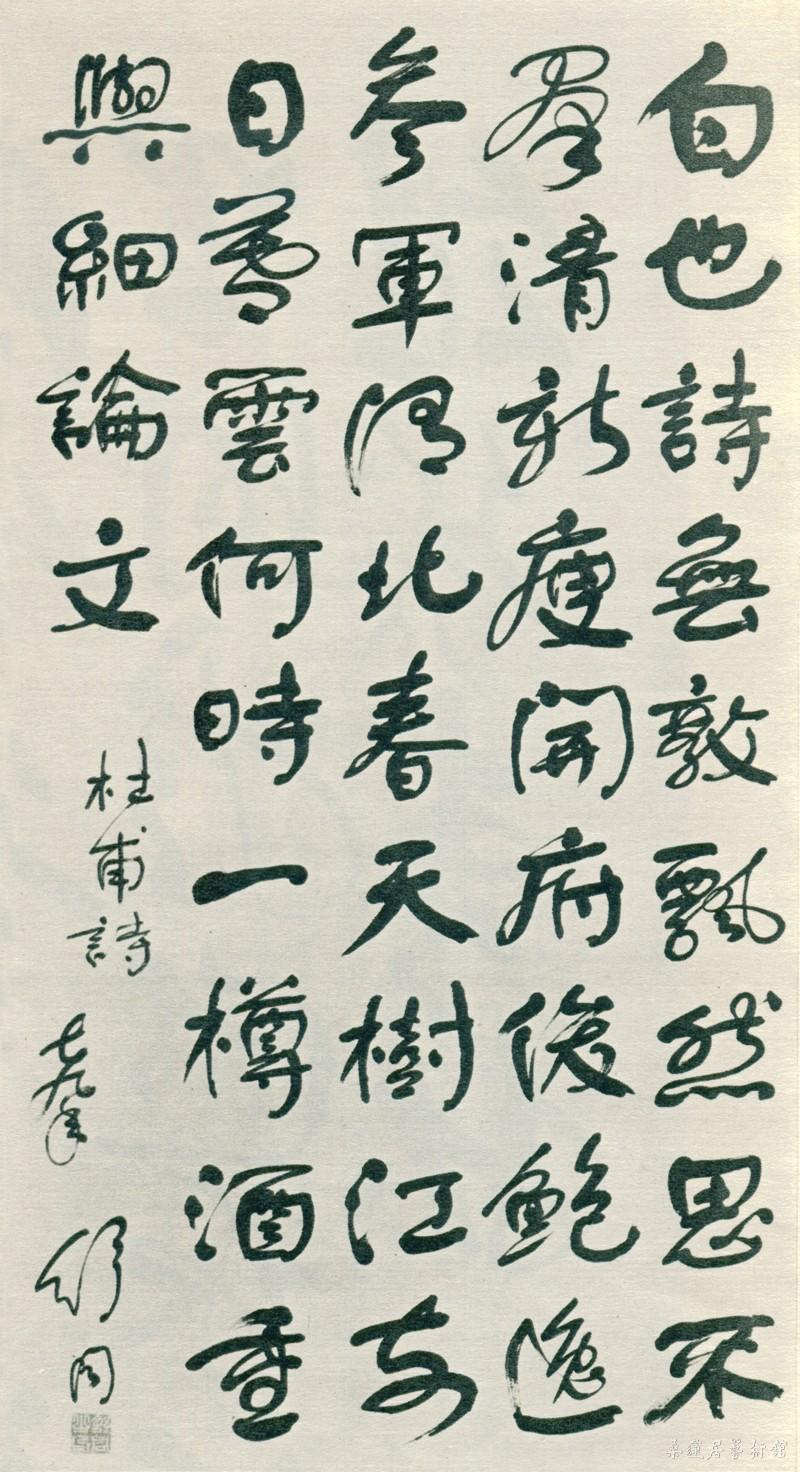 白也詩無敵飄然思不
羣清新庾開府俊鮑逸
參軍渭北春天樹江東
日暮雲何時一樽酒重
與細論文
杜甫詩
七九年
舒同
桑蓮居藝術館